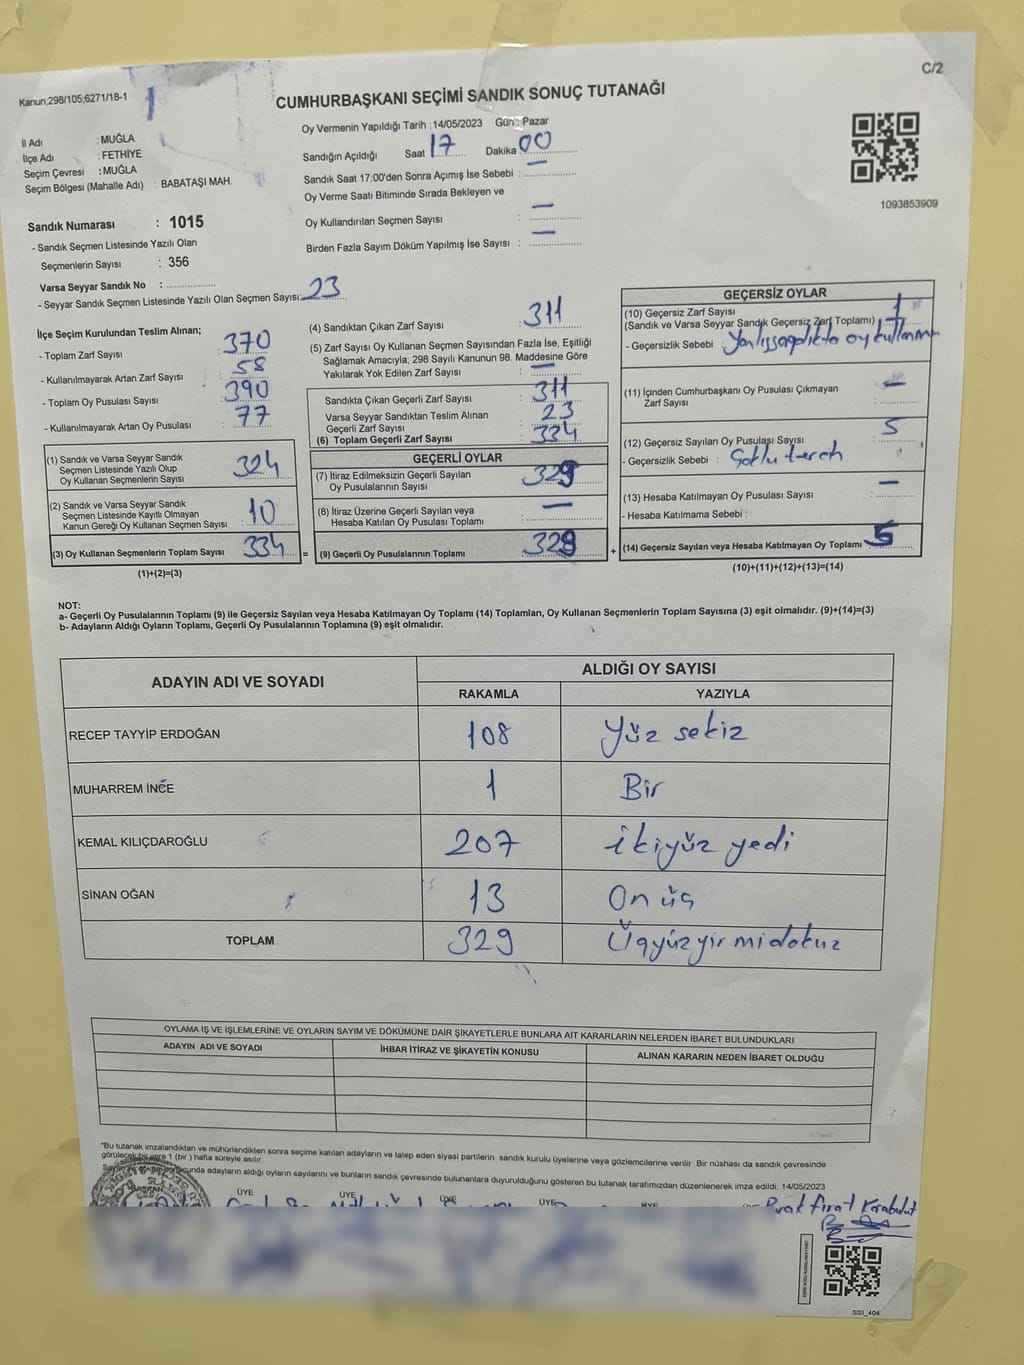 C/2
Kanun;298/105;6271/18-1
CUMHURBAŞKANI SEÇİMİ SANDIK SONUÇ TUTANAĞI
İl Adı : MUĞLA
İlçe Adı : FETHİYE
Seçim Çevresi : MUĞLA
Seçim Bölgesi (Mahalle Adı) : BABATAŞI MAH.
Oy Vermenin Yapıldığı Tarih : 14/05/2023 Gün : Pazar
Sandığın Açıldığı Saat 17 Dakika 00
Sandık Saat 17:00'den Sonra Açımış İse Sebebi : —
Oy Verme Saati Bitiminde Sırada Bekleyen ve
Oy Kullandırılan Seçmen Sayısı : —
Birden Fazla Sayım Döküm Yapılmış İse Sayısı : —
1093853909
Sandık Numarası : 1015
- Sandık Seçmen Listesinde Yazılı Olan
Seçmenlerin Sayısı : 356
Varsa Seyyar Sandık No :
- Seyyar Sandık Seçmen Listesinde Yazılı Olan Seçmen Sayısı: 23
İlçe Seçim Kurulundan Teslim Alınan;
- Toplam Zarf Sayısı : 370
- Kullanılmayarak Artan Zarf Sayısı : 58
- Toplam Oy Pusulası Sayısı : 390
- Kullanılmayarak Artan Oy Pusulası : 77
(1) Sandık ve Varsa Seyyar Sandık
Seçmen Listesinde Yazılı Olup
Oy Kullanan Seçmenlerin Sayısı : 324
(2) Sandık ve Varsa Seyyar Sandık
Seçmen Listesinde Kayıtlı Olmayan
Kanun Gereği Oy Kullanan Seçmen Sayısı : 10
(3) Oy Kullanan Seçmenlerin Toplam Sayısı : 334
(1)+(2)=(3)
(4) Sandıktan Çıkan Zarf Sayısı : 311
(5) Zarf Sayısı Oy Kullanan Seçmen Sayısından Fazla İse, Eşitliği
Sağlamak Amacıyla; 298 Sayılı Kanunun 98. Maddesine Göre
Yakılarak Yok Edilen Zarf Sayısı : —
Sandıkta Çıkan Geçerli Zarf Sayısı : 311
Varsa Seyyar Sandıktan Teslim Alınan
Geçerli Zarf Sayısı : 23
(6) Toplam Geçerli Zarf Sayısı : 334
GEÇERLİ OYLAR
(7) İtiraz Edilmeksizin Geçerli Sayılan
Oy Pusulalarının Sayısı : 329
(8) İtiraz Üzerine Geçerli Sayılan veya
Hesaba Katılan Oy Pusulası Toplamı : —
= (9) Geçerli Oy Pusulalarının Toplamı : 329
GEÇERSİZ OYLAR
(10) Geçersiz Zarf Sayısı
(Sandık ve Varsa Seyyar Sandık Geçersiz Zarf Toplamı) : 1
- Geçersizlik Sebebi : Yanlış sandıkta oy kullanma
(11) İçinden Cumhurbaşkanı Oy Pusulası Çıkmayan
Zarf Sayısı : —
(12) Geçersiz Sayılan Oy Pusulası Sayısı : 5
- Geçersizlik Sebebi : Çoklu tercih
(13) Hesaba Katılmayan Oy Pusulası Sayısı : —
- Hesaba Katılmama Sebebi :
+ (14) Geçersiz Sayılan veya Hesaba Katılmayan Oy Toplamı : 5
(10)+(11)+(12)+(13)=(14)
NOT:
a- Geçerli Oy Pusulalarının Toplamı (9) ile Geçersiz Sayılan veya Hesaba Katılmayan Oy Toplamı (14) Toplamları, Oy Kullanan Seçmenlerin Toplam Sayısına (3) eşit olmalıdır. (9)+(14)=(3)
b- Adayların Aldığı Oyların Toplamı, Geçerli Oy Pusulalarının Toplamına (9) eşit olmalıdır.
ADAYIN ADI VE SOYADI ALDIĞI OY SAYISI
RAKAMLA YAZIYLA
RECEP TAYYİP ERDOĞAN 108 Yüz sekiz
MUHARREM İNCE 1 Bir
KEMAL KILIÇDAROĞLU 207 ikiyüz yedi
SİNAN OĞAN 13 On üç
TOPLAM 329 Üçyüzyirmidokuz
OYLAMA İŞ VE İŞLEMLERİNE VE OYLARIN SAYIM VE DÖKÜMÜNE DAİR ŞİKAYETLERLE BUNLARA AİT KARARLARIN NELERDEN İBARET BULUNDUKLARI
ADAYIN ADI VE SOYADI İHBAR İTİRAZ VE ŞİKAYETİN KONUSU ALINAN KARARIN NEDEN İBARET OLDUĞU
"Bu tutanak imzalandıktan ve mühürlendikten sonra seçime katılan adayların ve talep eden siyasi partilerin sandık kurulu üyelerine veya gözlemcilerine verilir. Bir nüshası da sandık çevresinde
görülecek bir yere 1 (bir) hafta süreyle asılır.
adayların aldığı oyların sayılarını ve bunların sandık çevresinde bulunanlara duyurulduğunu gösteren bu tutanak tarafımızdan düzenlenerek imza edildi. 14/05/2023
BAŞKAN ÜYE ÜYE ÜYE ÜYE ÜYE ÜYE
Burak Fırat Karabulut
SSI_404